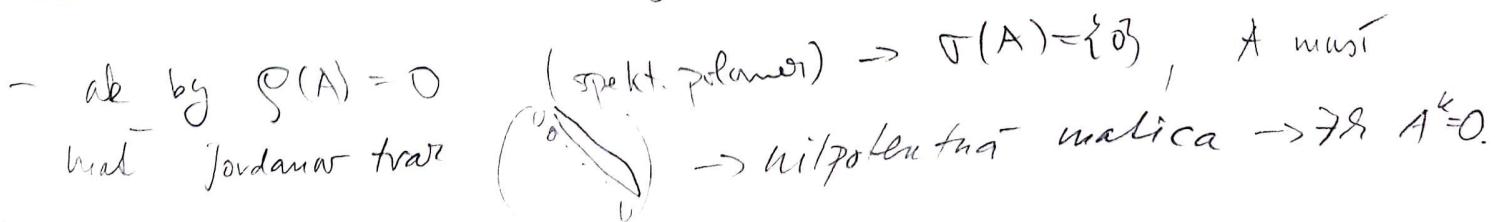 - ak by ρ(A) = 0 (spekt. polomer) → σ(A)={0}, A musí
mať Jordanov tvar (0 0 0) → nilpotentná matica → ∃k A^k=0.